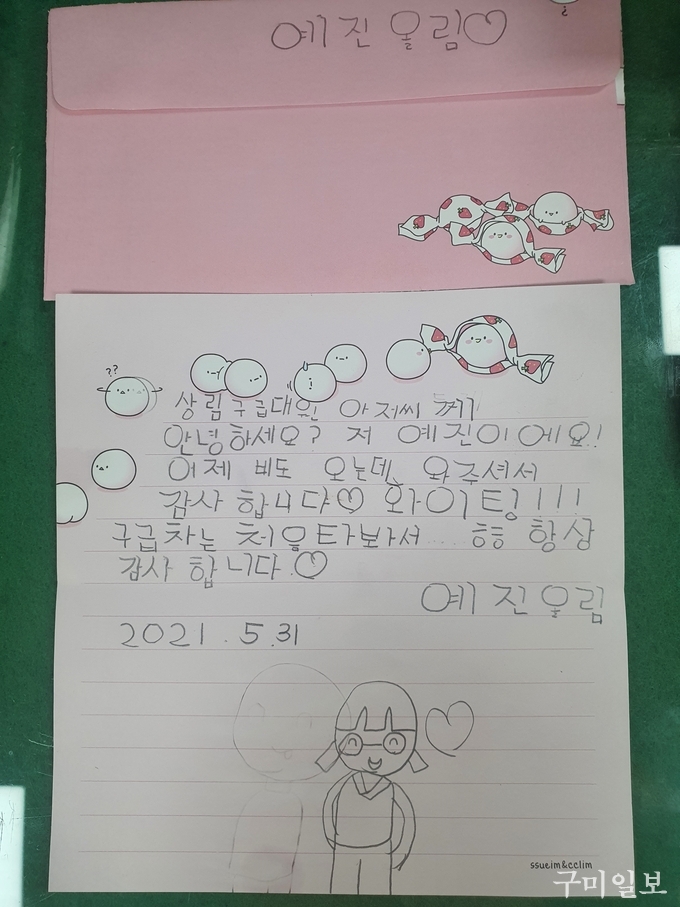 예진올림♡
??
상림구급대원 아저씨께
안녕하세요? 저 예진이에요!
어제 비도 오는데 와주셔서
감사 합니다♡ 화이팅!!!
구급차는 처음타봐서.... 흥흥 항상
감사 합니다.♡
예진올림
2021. 5.31
ssueim&cclim
구미일보